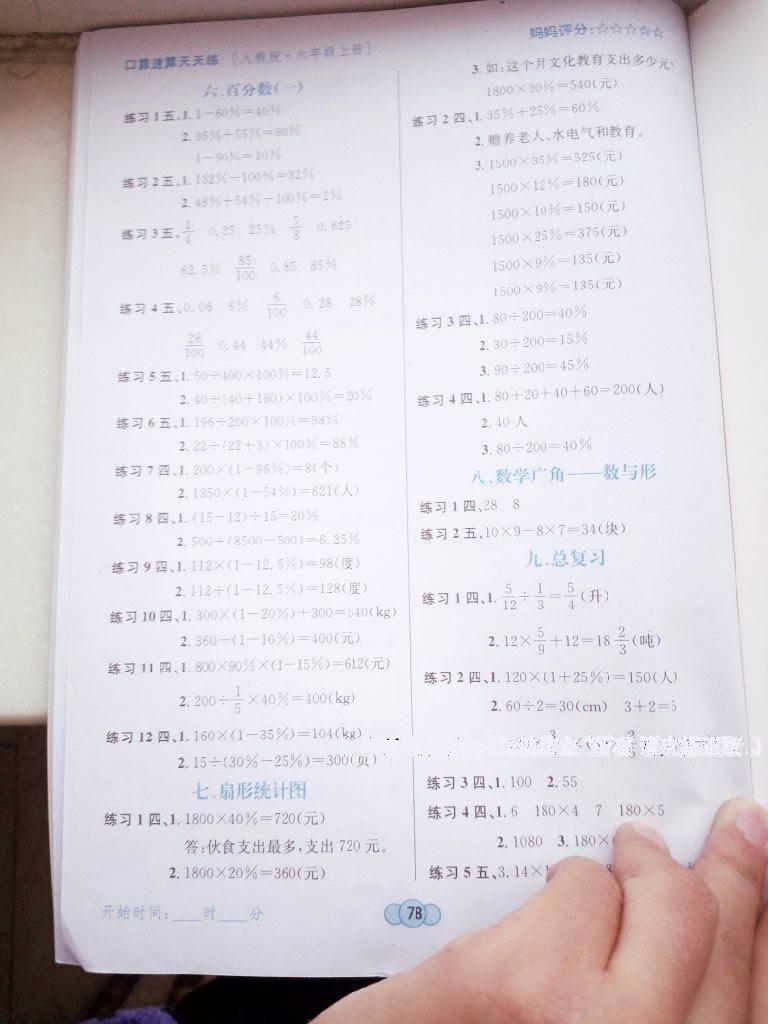 口算速算天天练 [人教版·六年级上册]
妈妈评分:☆☆☆☆☆
六、百分数(一)
练习1五、1. 1－60%＝40%
2. 35%＋55%＝90%
1－90%＝10%
练习2五、1. 132%－100%＝32%
2. 48%＋54%－100%＝2%
练习3五、1/4 0.25 25% 5/8 0.625
62.5% 85/100 0.85 85%
练习4五、0.06 6% 6/100 0.28 28%
28/100 0.44 44% 44/100
练习5五、1. 50÷400×100%＝12.5
2. 40÷(40＋160)×100%＝20%
练习6五、1. 196÷200×100%＝98%
2. 22÷(22＋3)×100%＝88%
练习7四、1. 200×(1－96%)＝8(个)
2. 1350×(1－54%)＝621(人)
练习8四、1. (15－12)÷15＝20%
2. 500÷(8500－500)＝6.25%
练习9四、1. 112×(1－12.5%)＝98(度)
2. 112÷(1－12.5%)＝128(度)
练习10四、1. 300×(1－20%)＋300＝540(kg)
2. 360÷(1－10%)＝400(元)
练习11四、1. 800×90%×(1－15%)＝612(元)
2. 200÷1/5×40%＝400(kg)
练习12四、1. 160×(1－35%)＝104(kg)
2. 15÷(30%－25%)＝300(页)
七、扇形统计图
练习1四、1. 1800×40%＝720(元)
答:伙食支出最多,支出720元。
2. 1800×20%＝360(元)
3. 如:这个月文化教育支出多少元?
1800×30%＝540(元)
练习2四、1. 35%＋25%＝60%
2. 赡养老人、水电气和教育。
3. 1500×35%＝525(元)
1500×12%＝180(元)
1500×10%＝150(元)
1500×25%＝375(元)
1500×9%＝135(元)
1500×9%＝135(元)
练习3四、1. 80÷200＝40%
2. 30÷200＝15%
3. 90÷200＝45%
练习4四、1. 80＋20＋40＋60＝200(人)
2. 40人
3. 80÷200＝40%
八、数学广角——数与形
练习1四、28 8
练习2五、10×9－8×7＝34(块)
九、总复习
练习1四、1. 5/12÷1/3＝5/4(升)
2. 12×5/9＋12＝18 2/3(吨)
练习2四、1. 120×(1＋25%)＝150(人)
2. 60÷2＝30(cm) 3＋2＝5
练习3四、1. 100 2. 55
练习4四、1. 6 180×4 7 180×5
2. 1080 3. 180×
练习5五、3. 14×1
开始时间:____时____分
78